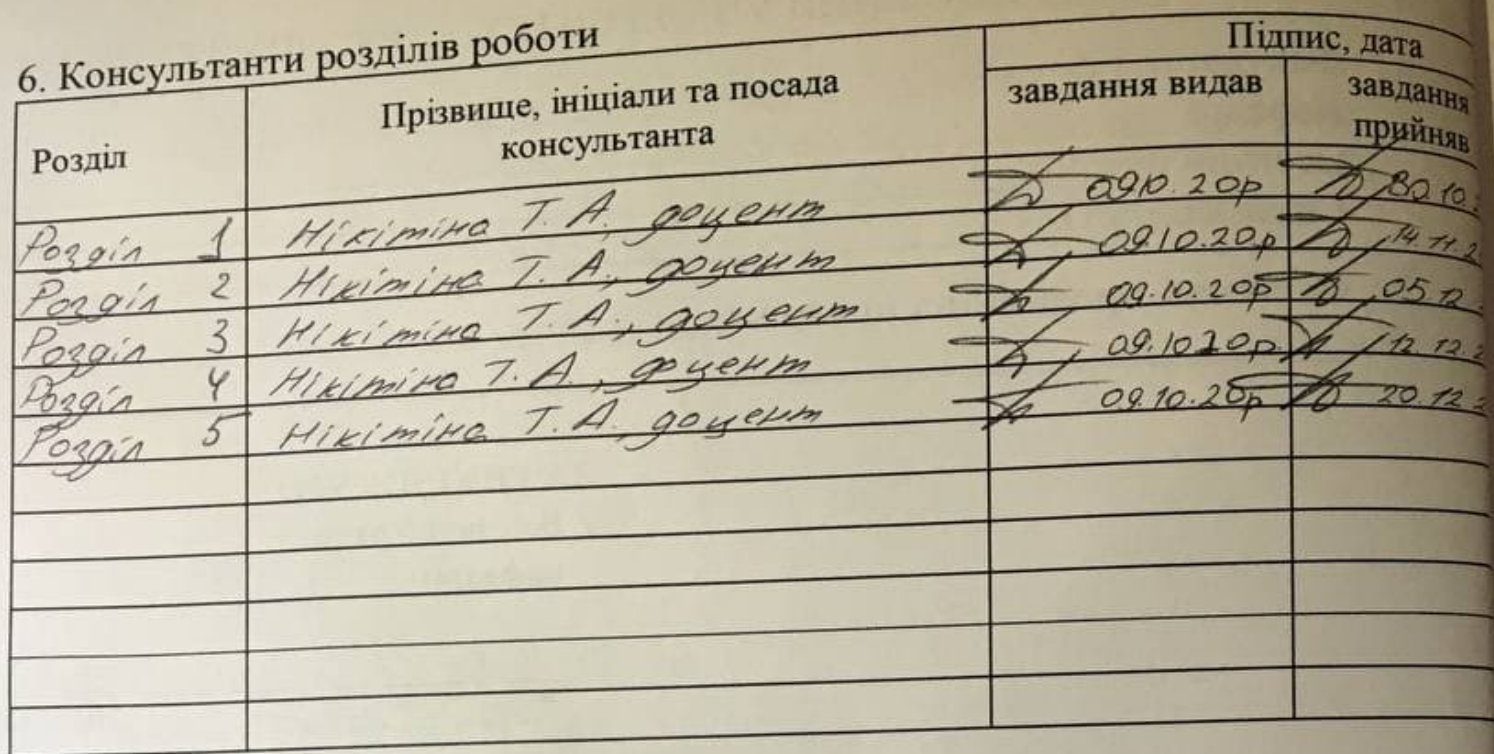 6. Консультанти розділів роботи
Розділ
Прізвище, ініціали та посада
консультанта
Підпис, дата
завдання видав
завдання
прийняв
Розділ 1 Нікітіна Т. А, доцент 09.10.20р 30.10.
Розділ 2 Нікітіна Т. А., доцент 09.10.20р 14.11.2
Розділ 3 Нікітіна Т. А., доцент 09.10.20р 05.12.
Розділ 4 Нікітіна Т. А., доцент 09.10.20р 12.12.2
Розділ 5 Нікітіна Т. А. доцент 09.10.20р 20.12.2